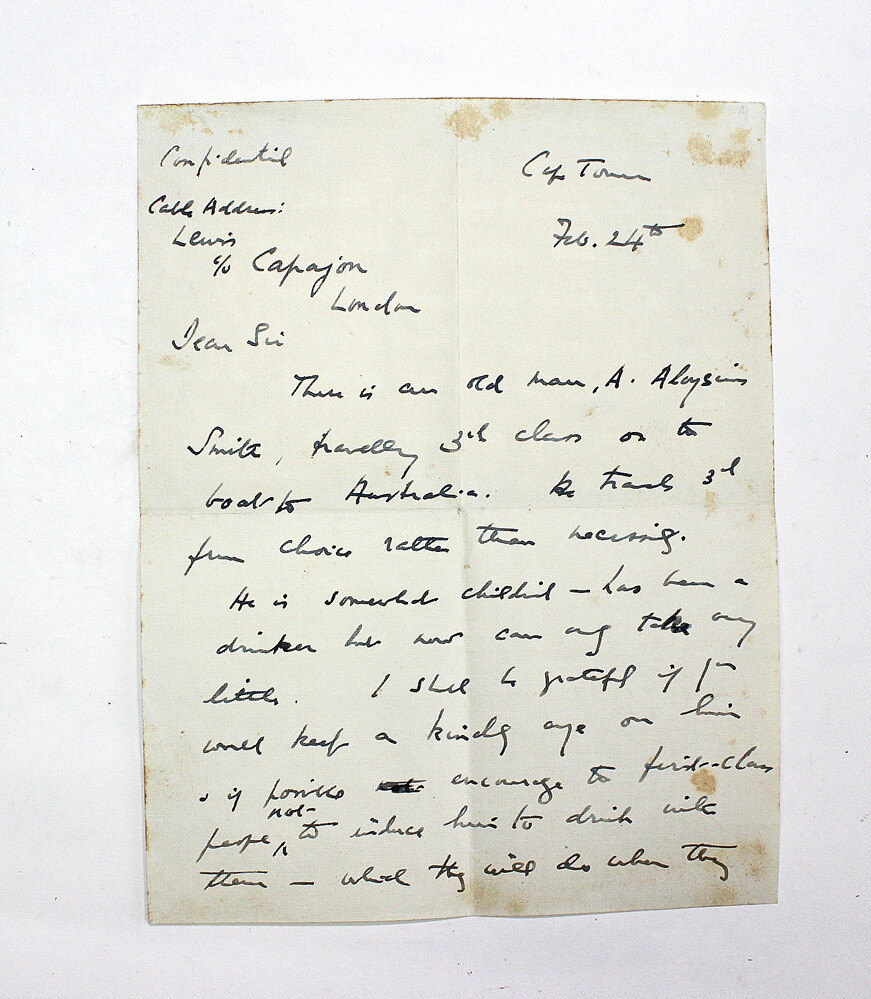 Confidential
Cape Town
Cable Address:
Feb. 24th
Lewis
c/o Capajon
London
Dear Sir
There is an old man, A. Aloysius
Smith, travelling 3rd class on the
boat to Australia. He travels 3rd
from choice rather than necessity.
He is somewhat childish – has been a
drinker but now can only take very
little. I shall be grateful if you
would keep a kindly eye on him
& if possible encourage to first-class
people not to induce him to drink with
them – which they will do when they